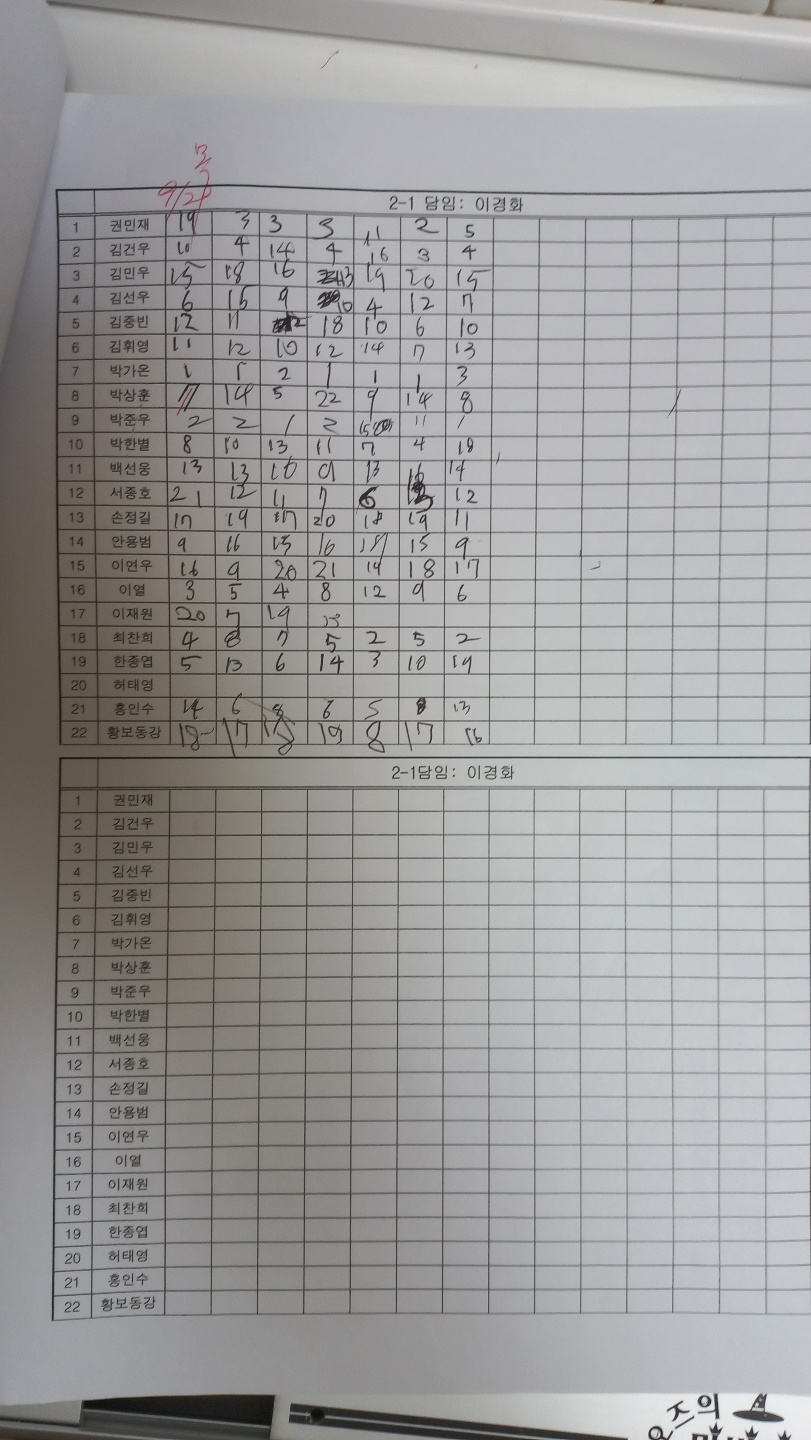 목
9/21
2-1 담임: 이경화
1 권민재 19 3 3 3 11 2 5
2 김건우 10 4 14 4 16 3 4
3 김민우 15 18 16 13 19 20 15
4 김선우 6 15 9 10 4 12 7
5 김중빈 12 11 12 18 10 6 10
6 김휘영 11 12 10 12 14 7 13
7 박가온 1 1 2 1 1 1 3
8 박상훈 7 14 5 22 9 14 8
9 박준우 2 2 1 2 15 11 1
10 박한별 8 10 13 11 7 4 18
11 백선웅 13 13 16 9 13 16 14
12 서종호 21 12 11 7 6 12
13 손정길 17 19 17 20 18 19 11
14 안용범 9 16 15 16 17 15 9
15 이연우 16 9 20 21 14 18 17
16 이열 3 5 4 8 12 9 6
17 이재원 20 7 19 15
18 최찬희 4 8 7 5 2 5 2
19 한종엽 5 13 6 14 3 10 19
20 허태영
21 홍인수 14 6 8 6 5 8 13
22 황보동강 18 17 18 19 8 17 16
2-1담임: 이경화
1 권민재
2 김건우
3 김민우
4 김선우
5 김중빈
6 김휘영
7 박가온
8 박상훈
9 박준우
10 박한별
11 백선웅
12 서종호
13 손정길
14 안용범
15 이연우
16 이열
17 이재원
18 최찬희
19 한종엽
20 허태영
21 홍인수
22 황보동강
오즈의